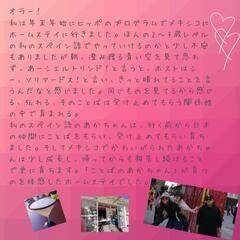 オラー！
私は年末年始にヒッポのプログラムでメキシコに
ホームステイに行きました。ほんの2〜3歳レベル
の私のスペイン語でやっていけるのかと少し不安
もありましたが朝、澄み渡る青い空を見て思わ
ず、あーシエルトリンド！と言うと、ホストはシ
ー、ソリアードス！と言い、きっと晴れてることを言
うんだなと感じました。同じものを見てるから感じ
る、伝わる、そのことばは受け止めてもらう関係性
の中で育まれる。
私のスペイン語のあかちゃんは、行く前から日本
の仲間にことばをもらい、受け止めてもらい育ち
ました。そしてメキシコでかわいがられたあかちゃ
んは少し成長し、帰ってからも報告し続けること
で更に育ちます。「ことばのあかちゃん」が育つ
のを体感したホームステイでした。